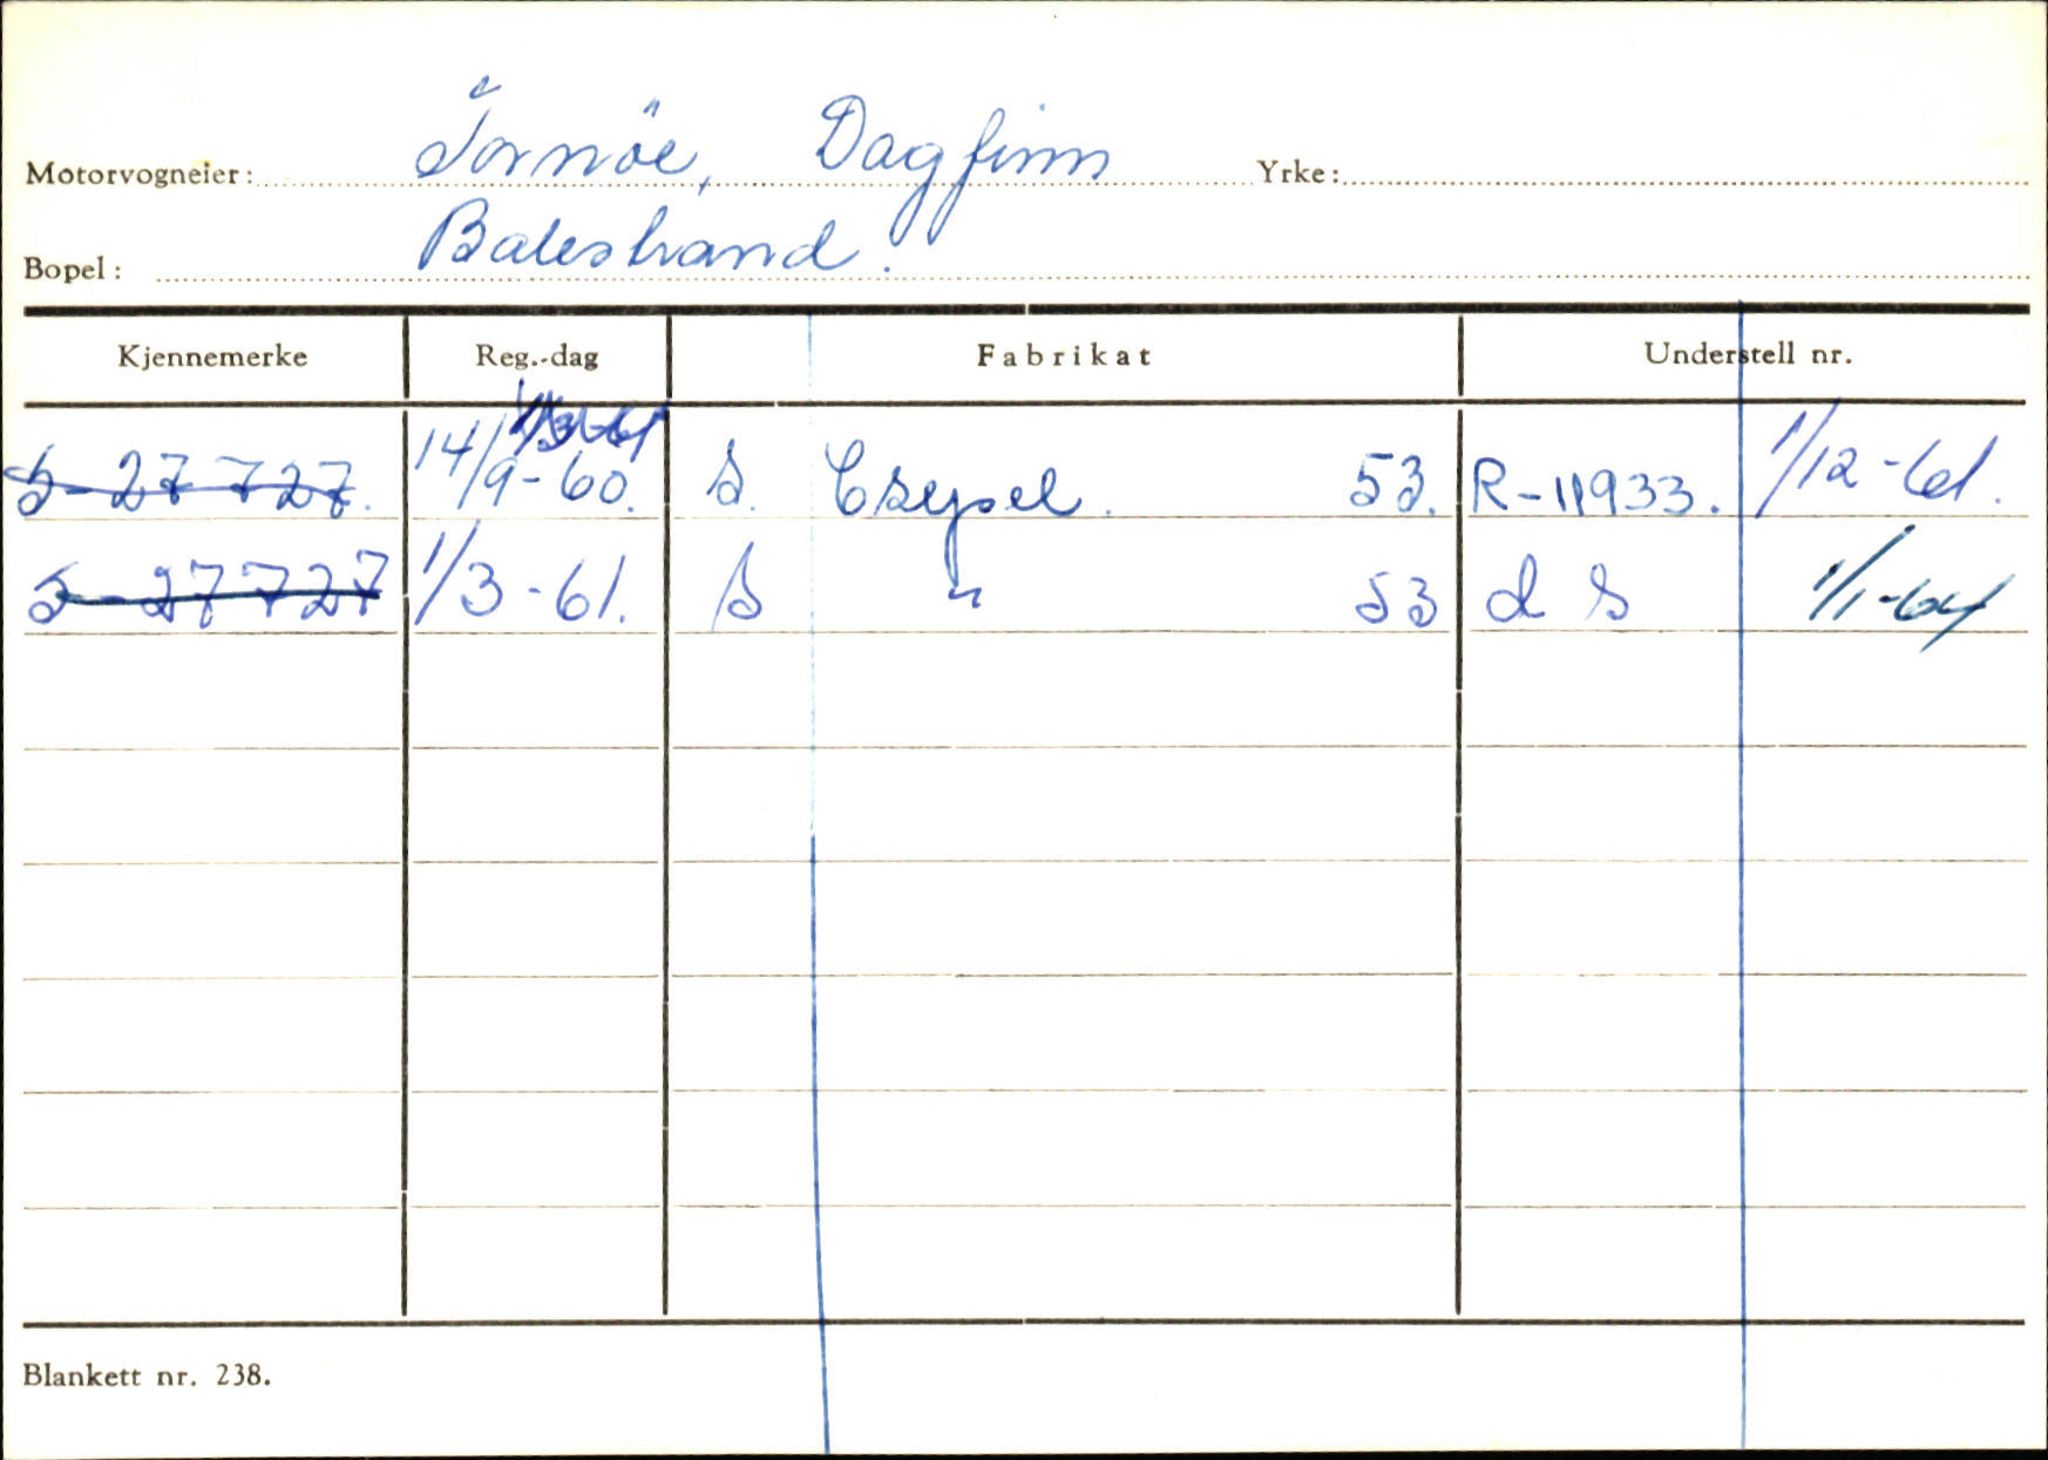 Motorvogneier: Tornöe, Dagfinn Yrke:
Bopel: Balestrand.
Kjennemerke Reg.-dag Fabrikat Understell nr.
S-27727. 14/9-60. S. Csepel. 53. R-11933. 1/12-61.
S-27727 1/3-61. S " 53 d S 1/1-64
Blankett nr. 238.